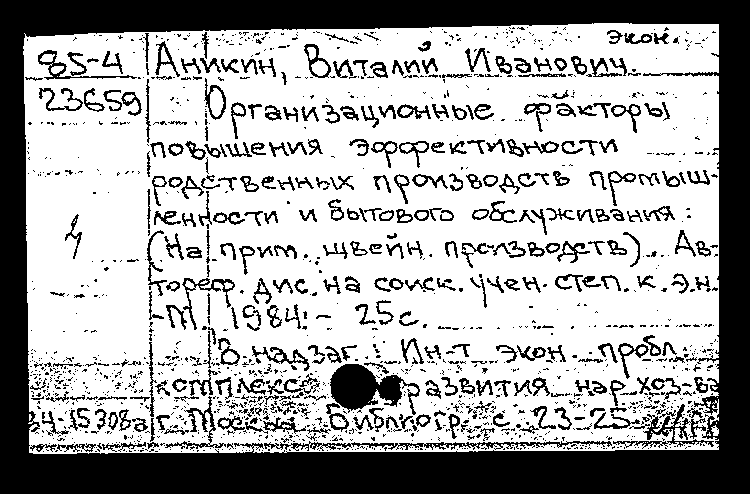 экон.
85-4 Аникин, Виталий Иванович.
23659 Организационные факторы
повышения эффективности
родственных производств промыш-
ленности и бытового обслуживания:
(На прим. швейн. производств). Ав-
тореф. дис. на соиск. учен. степ. к. э.н.
-М., 1984.- 25 с.
В надзаг.: Ин-т экон. пробл.
комплекс развития нар. хоз-ва
84-15308а г. Москвы Библиогр. с. 23-25